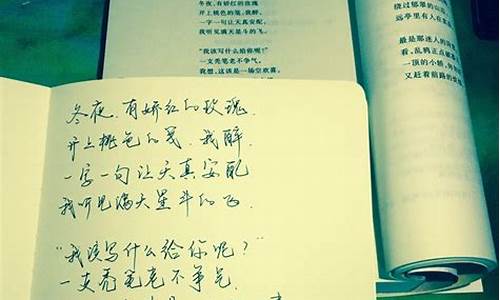 冬夜,有娇红的玫瑰
并上桃色的笺,我醉,
一字一句让天真安配,
我听见满天星斗的飞。
“我该写什么给你呢?”
一支秃笔老不争气,
我想,这该是一场空欢喜。
绕过郁翠的山
远亭里有人在
最是那迷人的
看,乱鸦正点
一顶的小轿,
又赶着前路的
冬夜,有娇红的玫瑰,
并上桃色的笺,我醉,
一字一句让天真安配
我听见满天星斗的飞.
“我该写什么给你呢?”
一支秃笔老不争气.